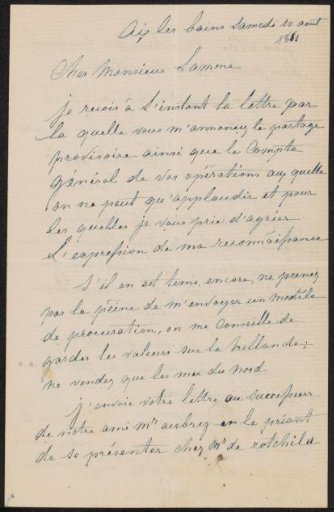 Aix les bains Samedi 10 aout
1861
Cher Monsieur Lamme
je recois à L'instant la lettre par
la quelle vous m'annoncez le partage
provisoire ainsi que le Compte
général de vos opérations aux quelles
on ne peut qu'applaudir et pour
les quelles je vous prie d'agréer
L'expression de ma reconnaissance
S'il en est tems, encore, ne prenez
pas la peine de m'envoyer un modèle
de procuration, on me Conseille de
garder les valeurs sur la hollande;
ne vendez que les mer du Nord
j'envoie votre lettre au successeur
de notre ami Mr aubrey en le priant
de se présenter chez Mr de rotchild